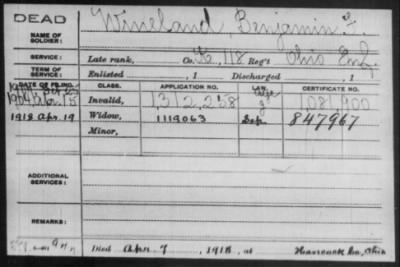 DEAD
NAME OF SOLDIER: Wineland, Benjamin F.
SERVICE: Late rank, Co. 118 Reg't Ohio Inf.
TERM OF SERVICE: Enlisted , 1 Discharged , 1
DATE OF FILING. CLASS. APPLICATION NO. LAW. CERTIFICATE NO.
1904 Apr. 15 Invalid, 1,312,258 1,081,900
1918 Apr. 19 Widow, 1119063 847967
Minor,
ADDITIONAL SERVICES:
REMARKS:
Died Apr. 7, 1918, at Hancock Co., Ohio